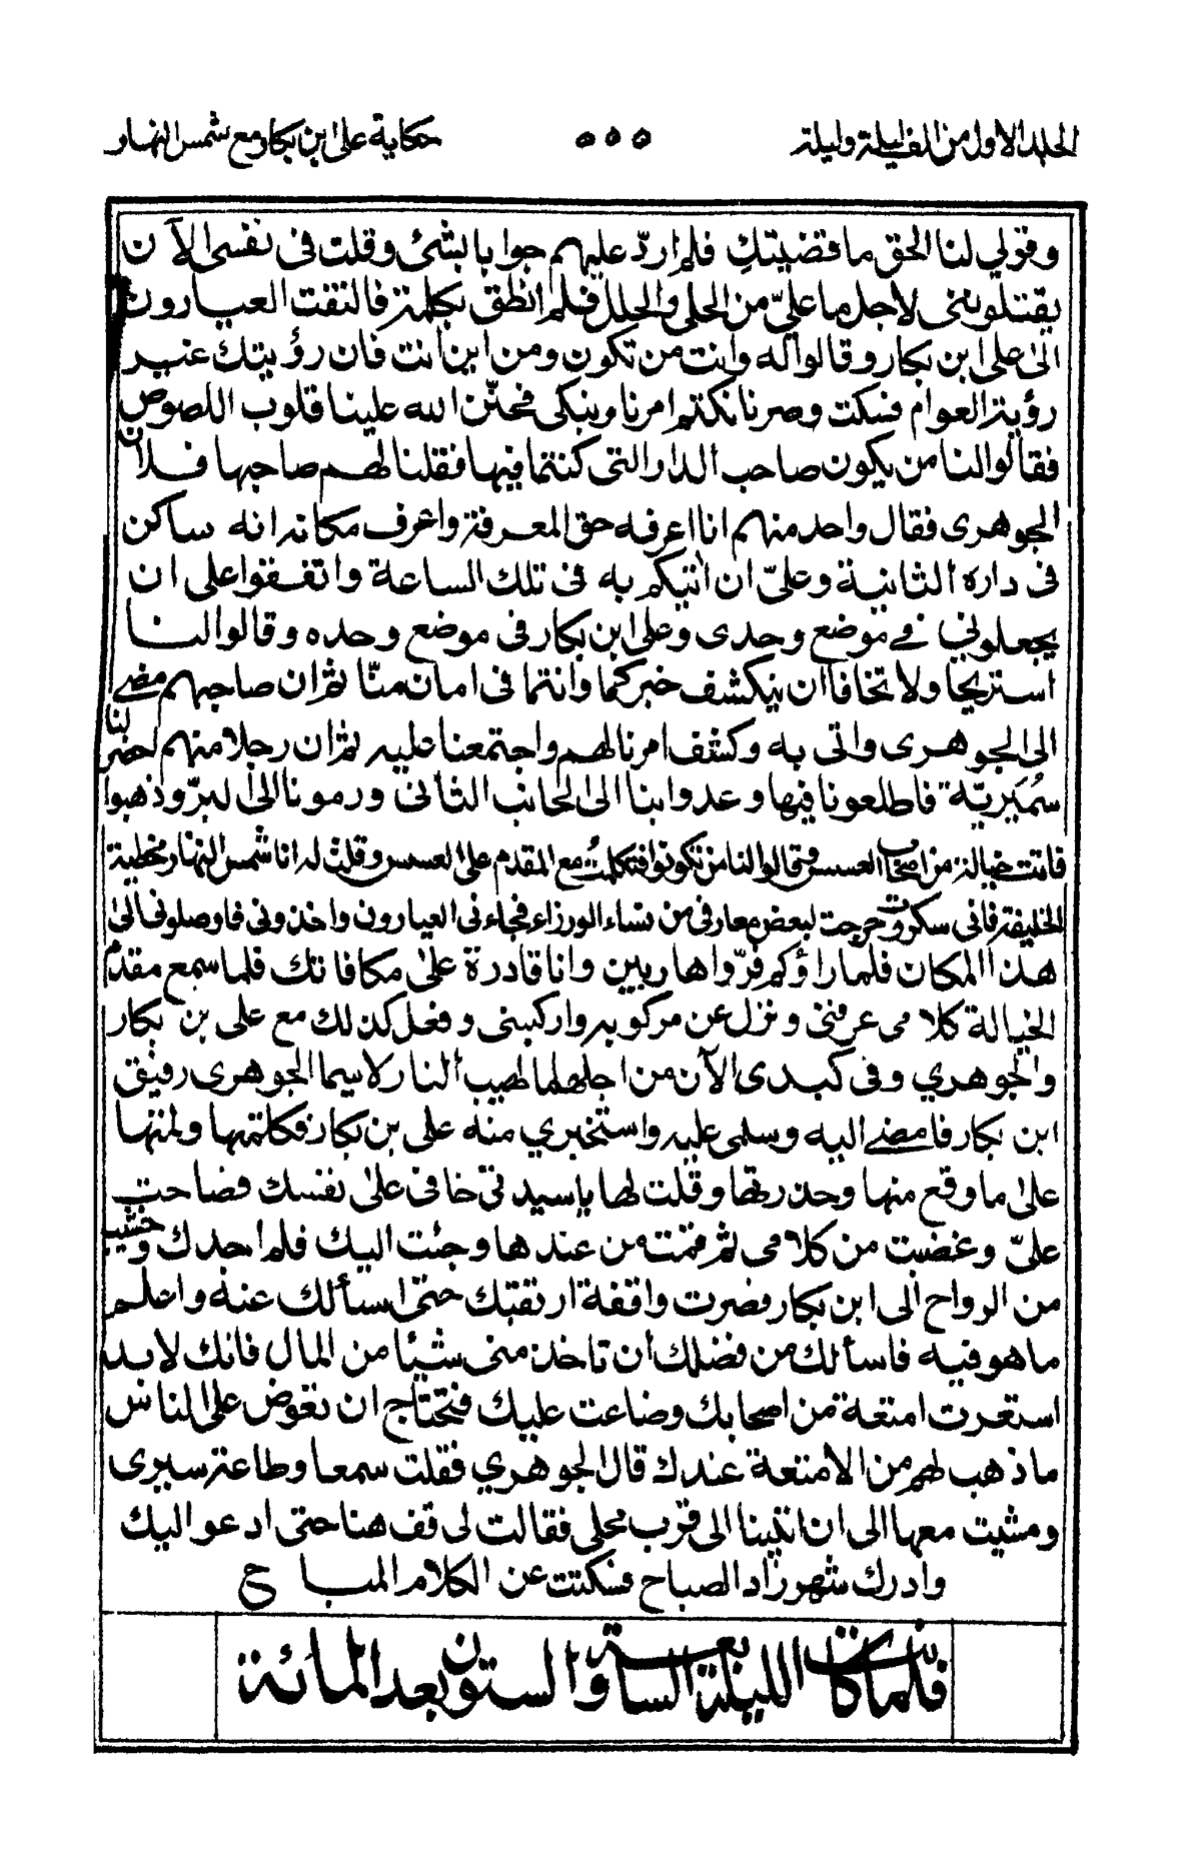 الجلد الاول من الف ليلة وليلة ٥٥٥ حكاية على ابن بكار ومع شمس النهار
وقولي لنا الحق ما قضيتكِ فلم اردّ عليهم جوابا بشئ وقلت فى نفسى الآن
يقتلوننى لاجل ما عليّ من الحلى والحلل فلم انطق بكلمة فالتفت العيارون
الى على ابن بكار وقالوا له وانت من تكون ومن اين انت فان رؤيتك غير
رؤية العوام فسكت وصرنا نكتم امرنا ونبكى فحنّن الله علينا قلوب اللصوص
فقالوا لنا من يكون صاحب الدار التى كنتما فيها فقلنا لهم صاحبها فلان
الجوهرى فقال واحد منهم انا اعرفه حق المعرفة واعرف مكانه انه ساكن
فى داره الثانية وعليّ ان اٰتيكم به فى تلك الساعة واتفقوا على ان
يجعلوني في موضع وحدى وعلى ابن بكار فى موضع وحده وقالوا لنا
استريحا ولا تخافا ان ينكشف خبركما وانتما فى امان منّا ثم ان صاحبهم مضى
الى الجوهرى واتى به وكشف امرنا لهم واجتمعنا عليه ثم ان رجلا منهم احضر لنا
سُمَيريّة فاطلعونا فيها وعدوا بنا الى الجانب الثانى ورمونا الى البرّ وذهبوا
فاتت خيالة من اصحاب العسس وقالوا لنا من تكونوا فتكلمتُ مع المقدم على العسس وقلت له انا شمس النهار محظية
الخليفة فانى سكرت وخرجت لبعض معارفى من نساء الوزراء فجاءنى العيارون واخذونى فاوصلونى الى
هذا المكان فلما راؤكم فرّوا هاربين وانا قادرة على مكافاتك فلما سمع مقدم
الخيالة كلامى عرفنى ونزل عن مركوبه واركبنى وفعل كذلك مع على بن بكار
والجوهري وفى كبدى الآن من اجلهما لهيب النار لاسيما الجوهرى رفيق
ابن بكار فامضى اليه وسلمى عليه واستخبري منه على بن بكار فكلمتها ولمتها
على ما وقع منها وحذرتها وقلت لها يا سيدتى خافى على نفسك فصاحت
عليّ وغضبت من كلامى ثم قمت من عندها وجئت اليك فلم اجدك وخشيت
من الرواح الى ابن بكار فصرت واقفة ارتقبك حتى اسألك عنه واعلم
ما هو فيه فاسألك من فضلك أن تاخذ منى شيئا من المال فانك لابد
استعرت امتعة من اصحابك وضاعت عليك فتحتاج ان تعوض على الناس
ما ذهب لهم من الامتعة عندك قال الجوهري فقلت سمعا وطاعة سيرى
ومشيت معها الى ان اتينا الى قرب محلى فقالت لى قف هنا حتى ادعو اليك
وادرك شهرزاد الصباح فسكتت عن الكلام المباح
فلما كانت الليلة السابعة والستون بعد المائة